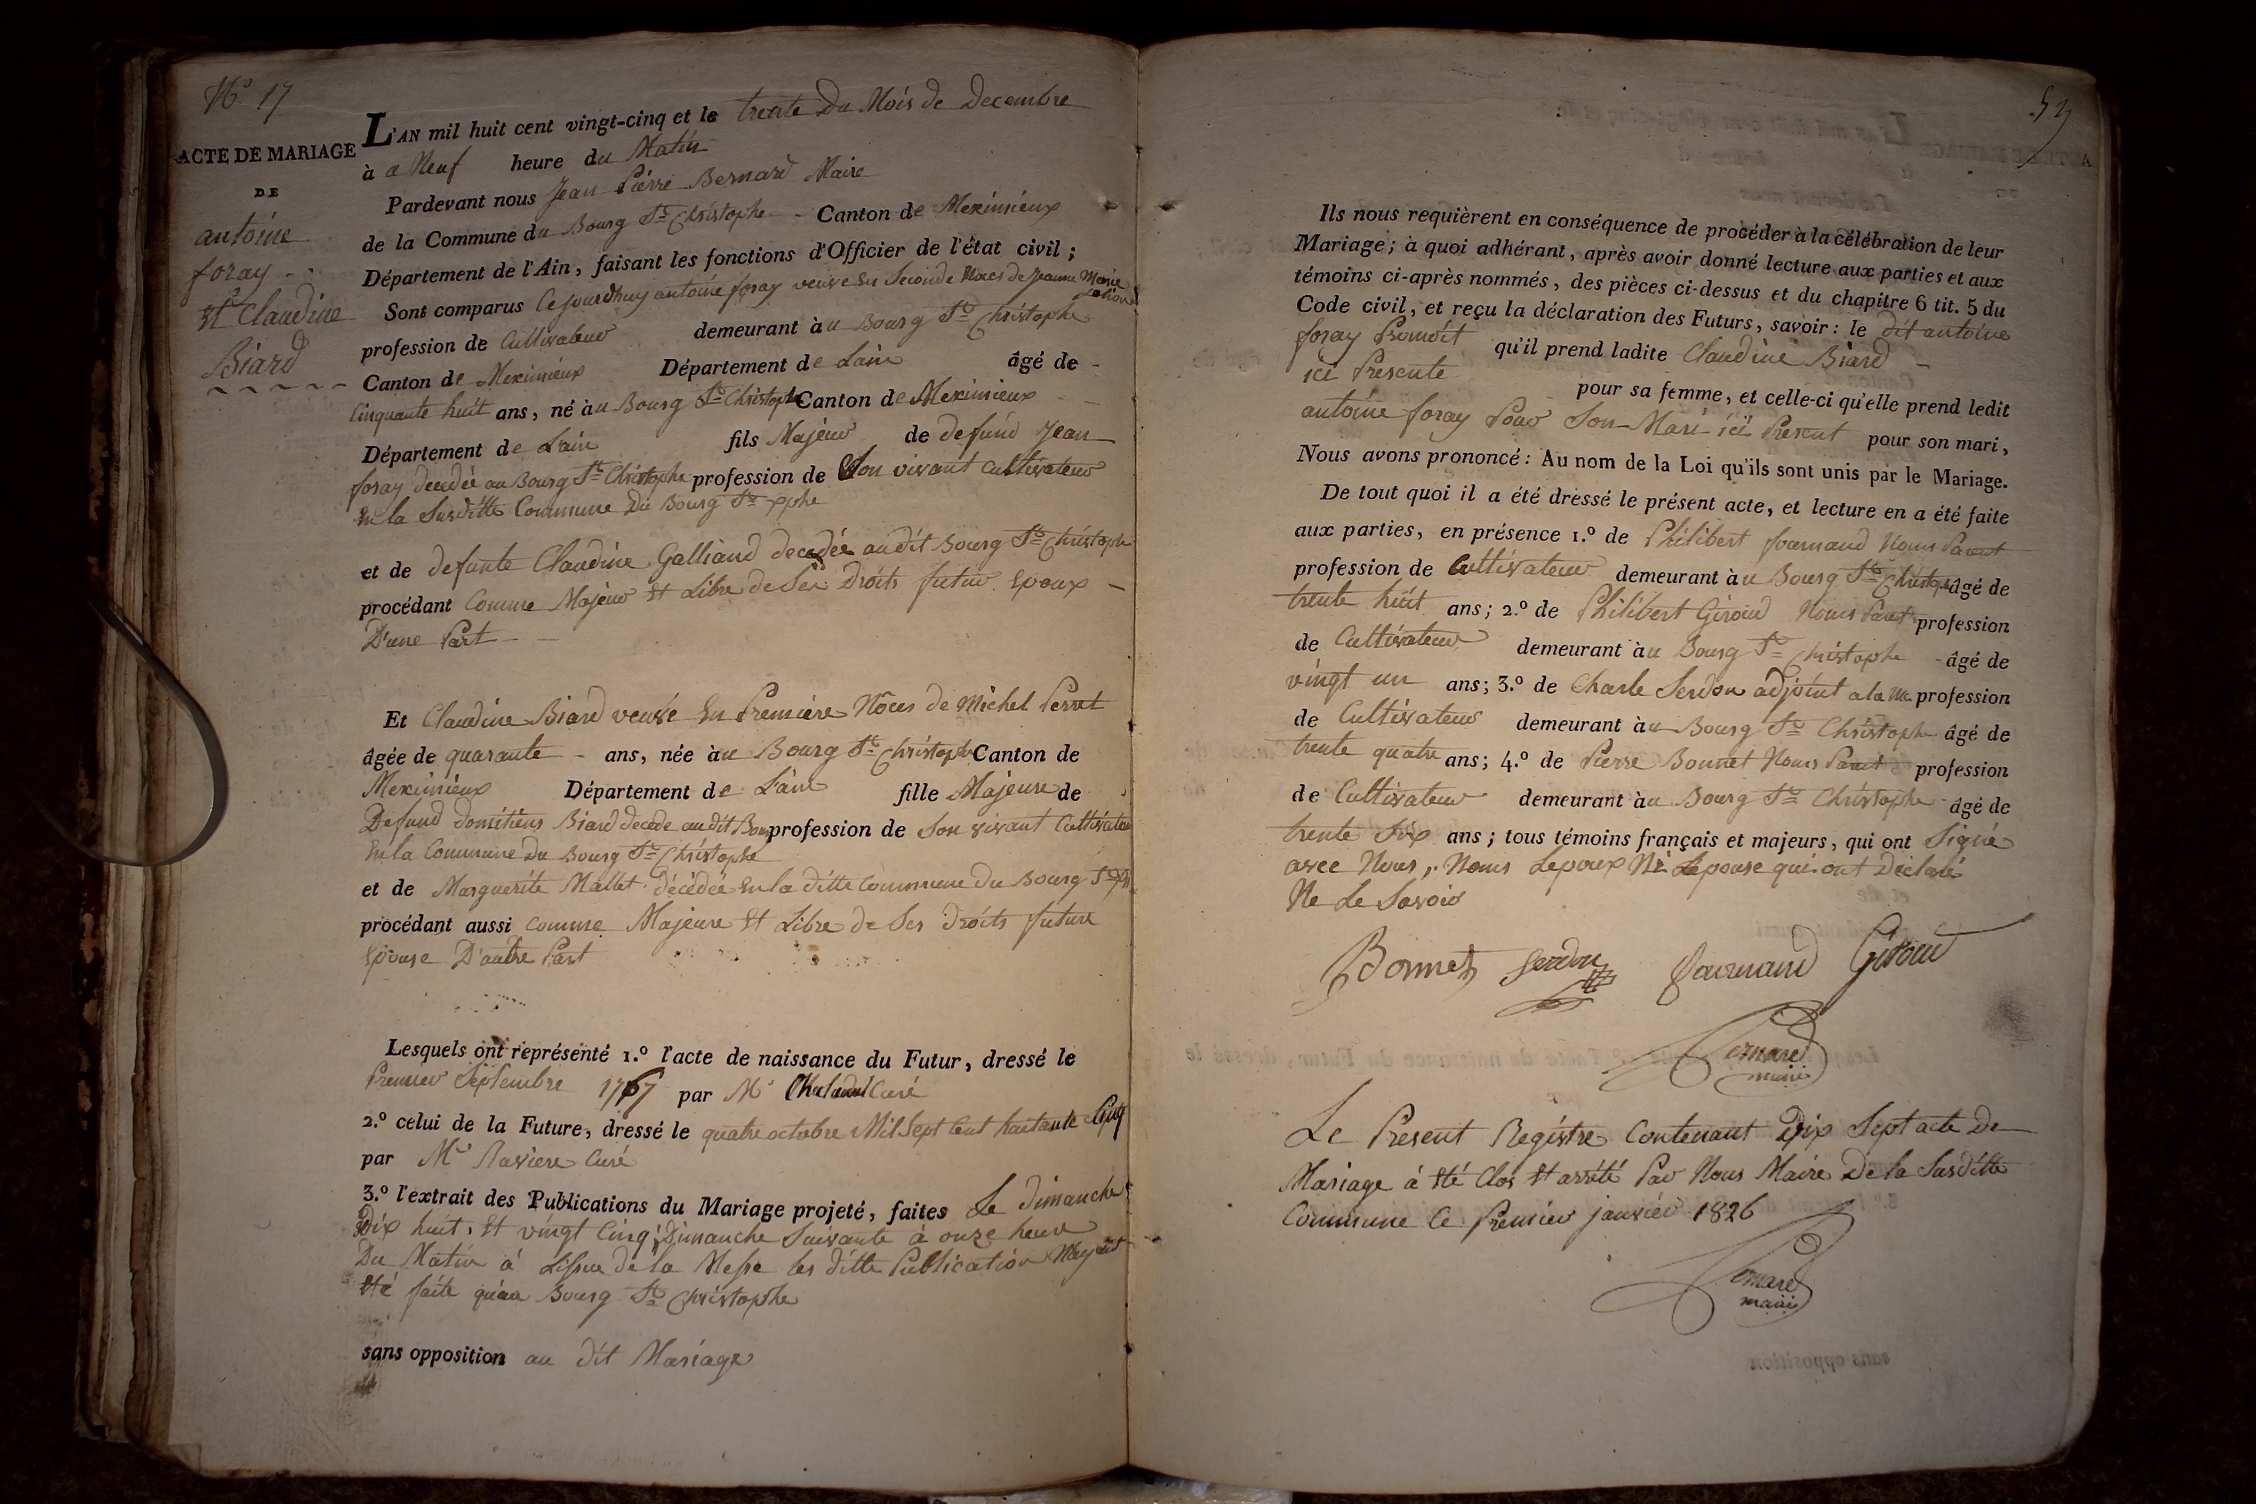 N.o 17
ACTE DE MARIAGE
DE
antoine
foray
Et Claudine
Biard
L'AN mil huit cent vingt-cinq et le trente Du Mois de Decembre
à a Neuf heure du Matin
Pardevant nous Jean Pierre Bernard Maire
de la Commune du Bourg St Christophe Canton de Meximieux
Département de l'Ain, faisant les fonctions d'Officier de l'état civil ;
Sont comparus Cejourdhuy antoine foray veuve En Seconde Noces de Jeanne Marie
profession de Cultivateur demeurant àu Bourg St Christophe
Canton de Meximieux Département de Lain âgé de
Cinquante huit ans, né àu Bourg St Christophe Canton de Meximieux
Département de Lain fils Majeur de defund Jean
foray decedée au Bourg St Christophe profession de Son vivant Cultivateur
En la Susditte Commune Du Bourg St xphe
et de defunte Claudine Galliand decedée audit Bourg St Christophe
procédant Comme Majeur Et Libre de Ses Droits futur Epoux
D'une Part
Et Claudine Biard veuve En Premiere Nôces de Michel Perret
âgée de quarante ans, née àu Bourg St Christophe Canton de
Meximieux Département de L'ain fille Majeure de
Defund domitiens Biard decede audit Bourg profession de Son vivant Cultivateur
En la Commune Du Bourg St Christophe
et de Marguerite Mallet décédée En la ditte Commune du Bourg St xphe
procédant aussi comme Majeure Et Libre de Ses droits future
Epouse D'autre Part
Lesquels ont représenté 1.º l'acte de naissance du Futur, dressé le
Premier Septembre 1767 par Mr Curé
2.º celui de la Future, dressé le quatre octobre Mil Sept Cent huitante Cinq
par Mr Raviere Curé
3.º l'extrait des Publications du Mariage projeté, faites Le dimanche
Dix huit, Et vingt Cinq, Dimanche Suivante à onze heure
Du Matin à Lissue de la Messe les ditte Publication Nayant
Eté faite qu'au Bourg St Christophe
sans opposition au dit Mariage
Ils nous requièrent en conséquence de procéder à la célébration de leur
Mariage; à quoi adhérant, après avoir donné lecture aux parties et aux
témoins ci-après nommés, des pièces ci-dessus et du chapitre 6 tit. 5 du
Code civil, et reçu la déclaration des Futurs, savoir : le dit antoine
foray Promoit qu'il prend ladite Claudine Biard
ici Presente pour sa femme, et celle-ci qu'elle prend ledit
antoine foray Pour Son Mari ici Present pour son mari,
Nous avons prononcé : Au nom de la Loi qu'ils sont unis par le Mariage.
De tout quoi il a été dressé le présent acte, et lecture en a été faite
aux parties, en présence 1.º de Philibert fournand Nom Parent
profession de Cultivateur demeurant àu Bourg St Christophe âgé de
trente huit ans; 2.º de Philibert Giroud Nom Parent profession
de Cultivateur demeurant àu Bourg St Christophe âgé de
vingt un ans; 3.º de Charle Serdon adjoint a la Me profession
de Cultivateur demeurant àu Bourg St Christophe âgé de
trente quatre ans; 4.º de Pierre Bonnet Nom Parent profession
de Cultivateur demeurant àu Bourg St Christophe âgé de
trente Six ans ; tous témoins français et majeurs, qui ont Signé
avec Nous, Lepoux Ni Lepouse qui ont Déclaré
Ne Le Savoir
Bonnet Serdon fournand Giroud
Bernard
maire
Le Present Registre Contenant Dix Sept acte De
Mariage à Eté Clos Et arrété Par Nous Maire De la Susditte
Commune Ce Premier janvier 1826
Bernard
maire